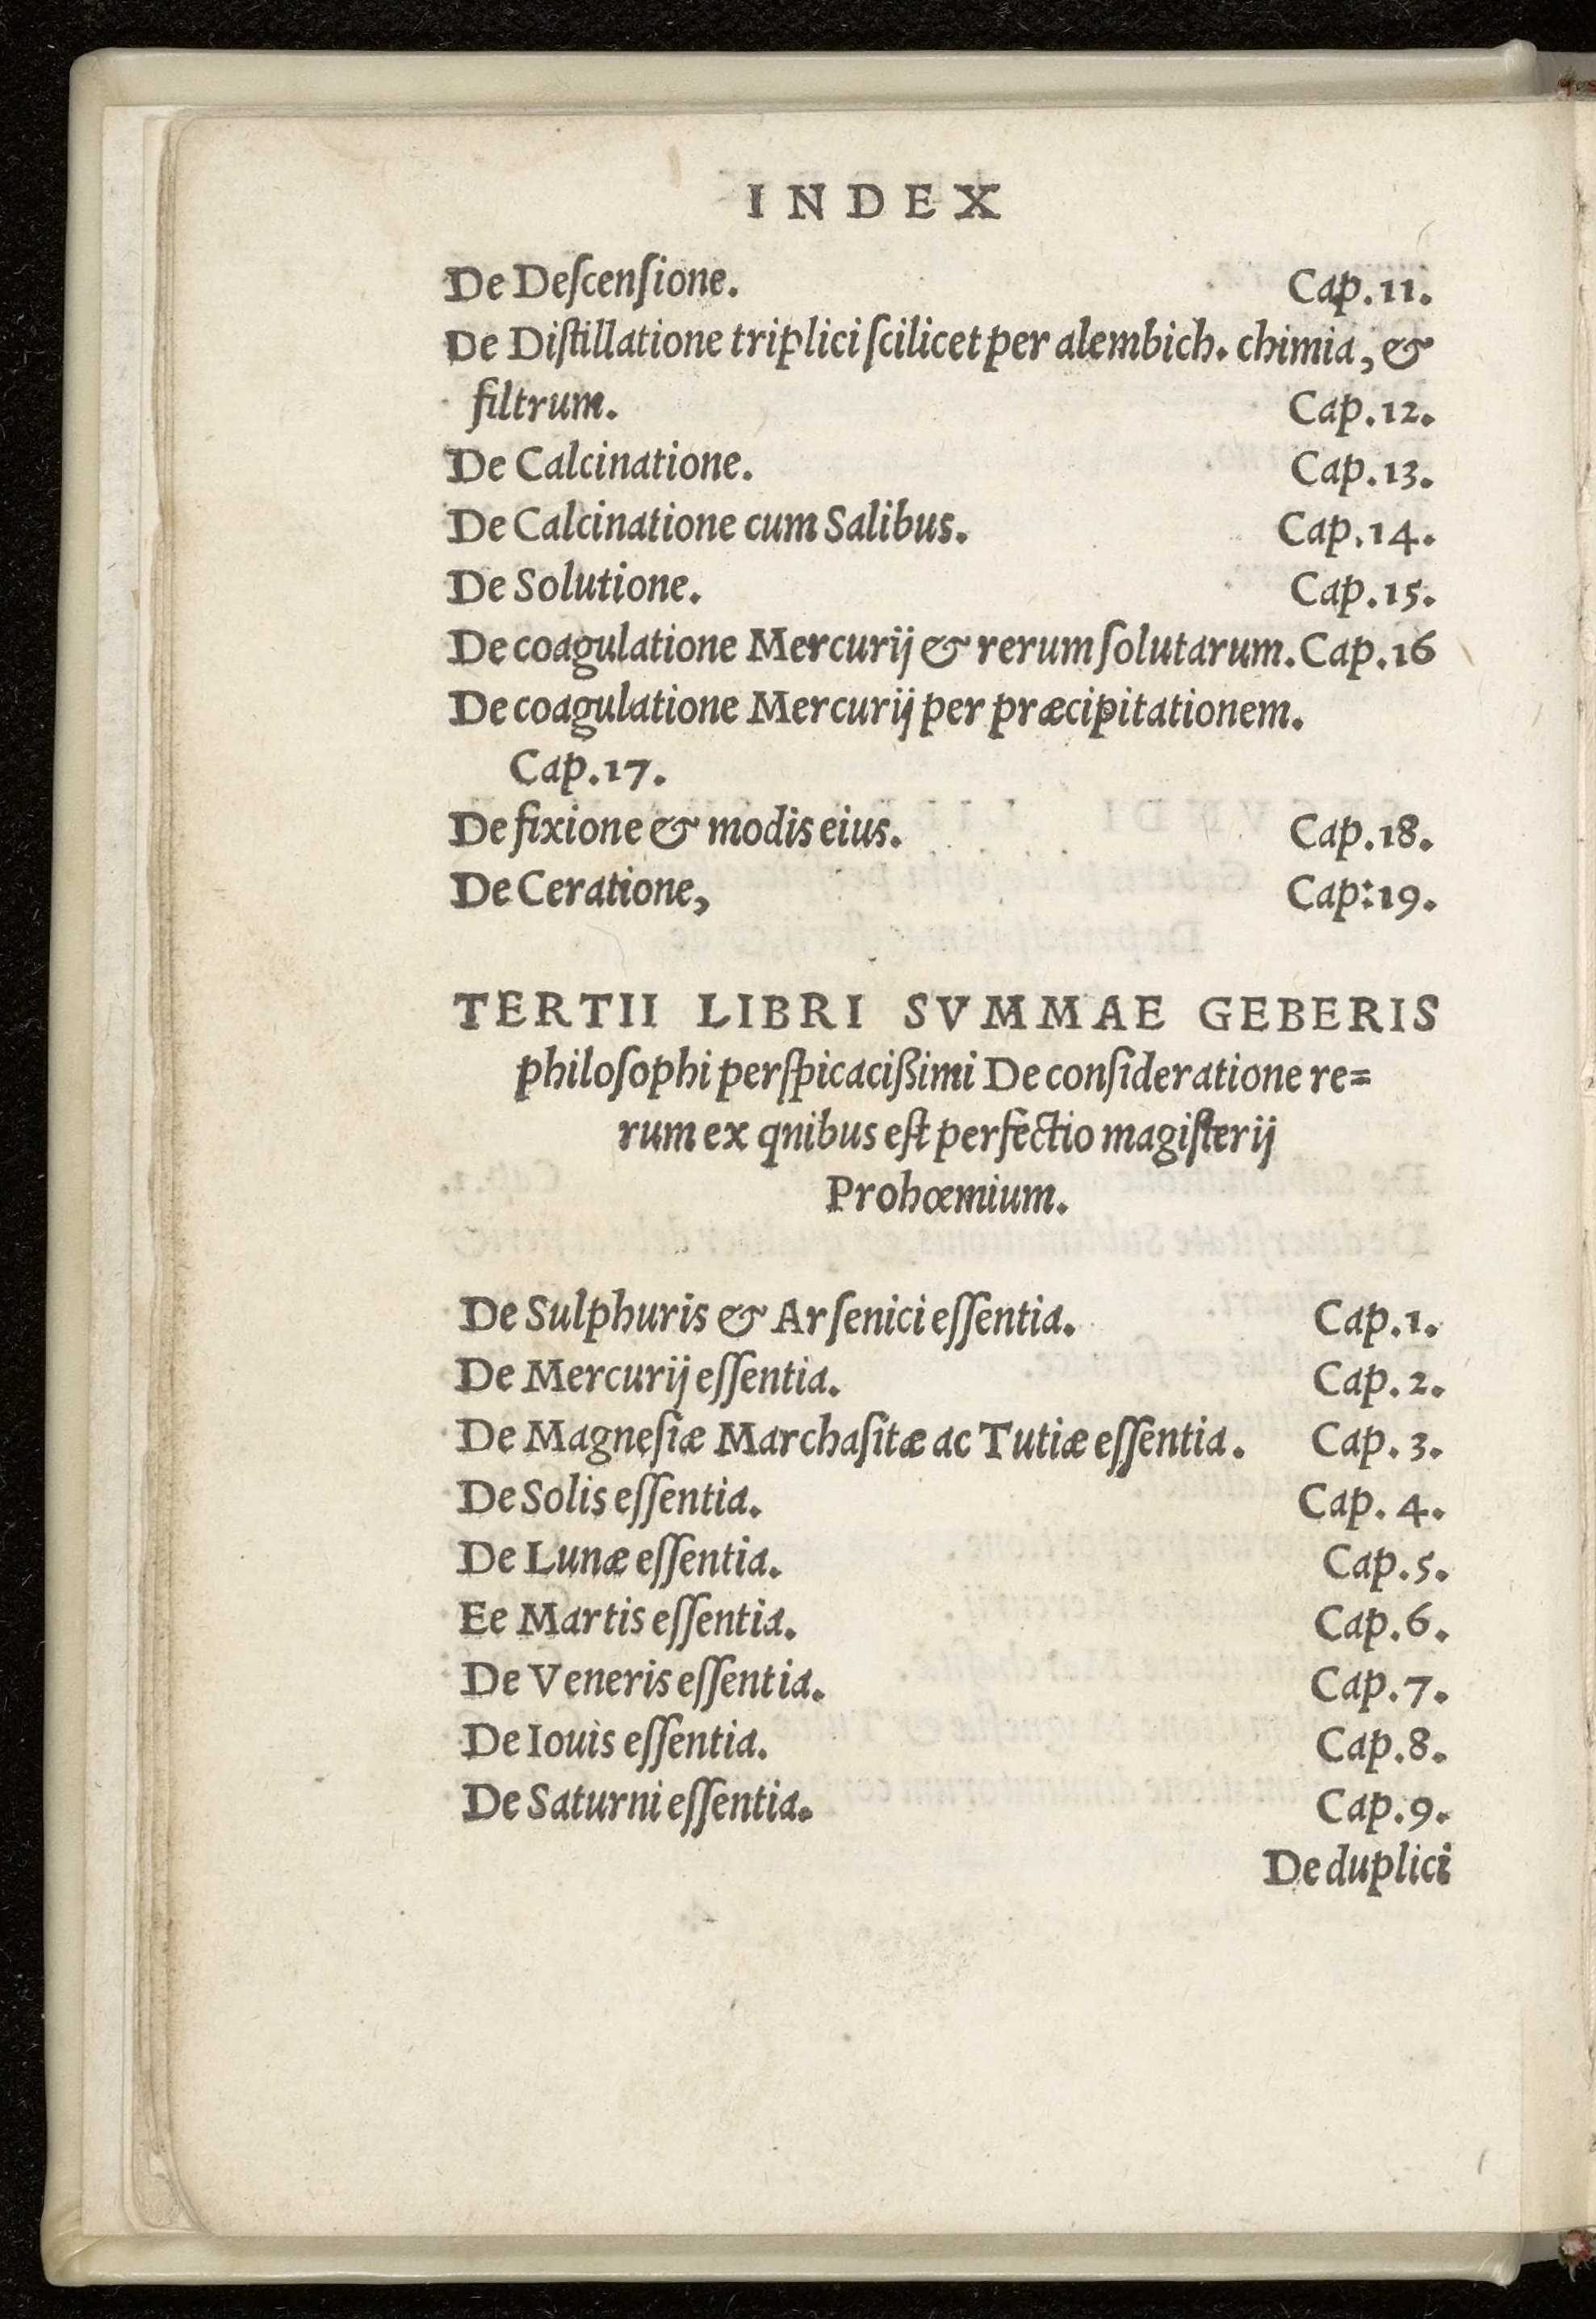 INDEX
De Deſcenſione. Cap.11.
De Diſtillatione triplici ſcilicet per alembich. chimia, &
filtrum. Cap.12.
De Calcinatione. Cap.13.
De Calcinatione cum Salibus. Cap.14.
De Solutione. Cap.15.
De coagulatione Mercurij & rerum ſolutarum. Cap.16
De coagulatione Mercurij per præcipitationem.
Cap.17.
De fixione & modis eius. Cap.18.
De Ceratione, Cap:19.
TERTII LIBRI SVMMAE GEBERIS
philoſophi perſpicacißimi De conſideratione re=
rum ex qnibus eſt perfectio magiſterij
Prohœmium.
De Sulphuris & Arſenici eſſentia. Cap.1.
De Mercurij eſſentia. Cap.2.
De Magneſiæ Marchaſitæ ac Tutiæ eſſentia. Cap.3.
De Solis eſſentia. Cap.4.
De Lunæ eſſentia. Cap.5.
Ee Martis eſſentia. Cap.6.
De Veneris eſſentia. Cap.7.
De Iouis eſſentia. Cap.8.
De Saturni eſſentia. Cap.9.
De duplici